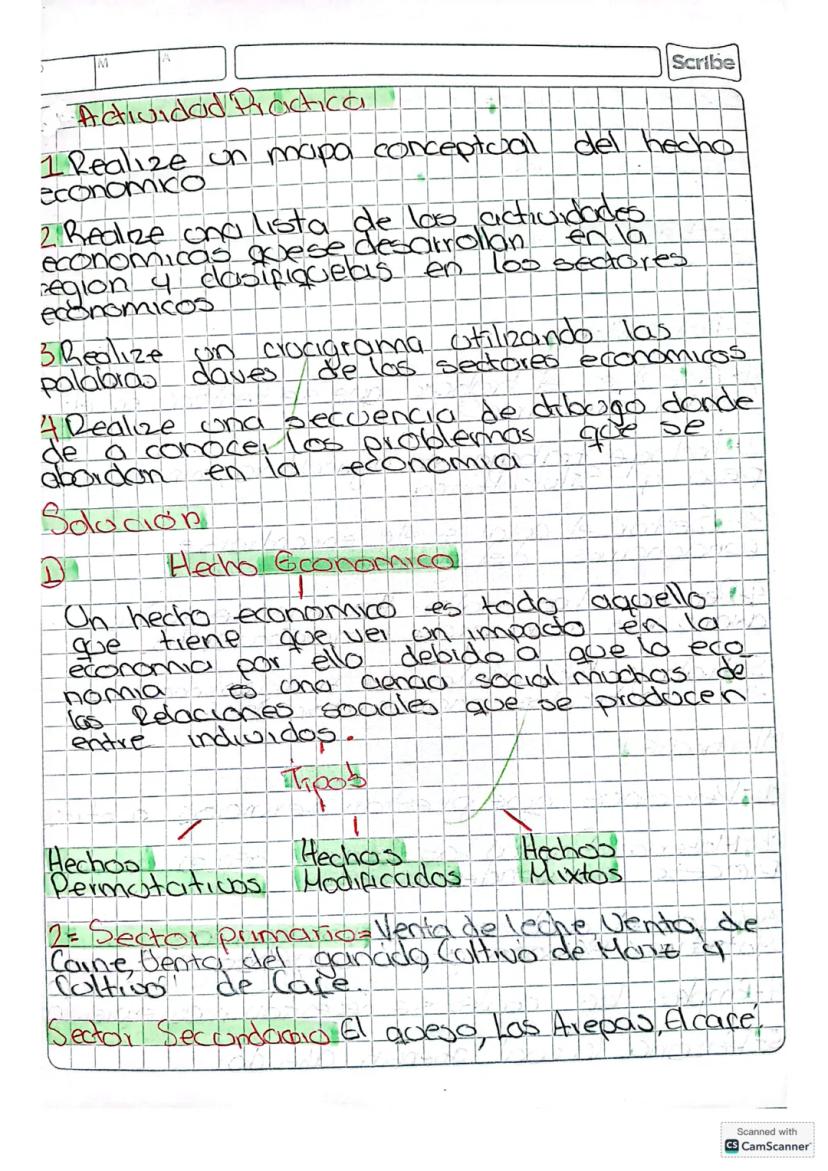 M
A
Scribe
Actividad Practica
1 Realize un mapa conceptual del hecho
economico
2 Realize una lista de las actividades
economicas que se desarrollan en la
region y clasifiquelas en los sectores
economicos
3 Realize un crucigrama utilizando las
palabras claves de los sectores economicos
4 Realize una secuencia de dibugo donde
de a conocer los problemas que se
abordan en la economia
Solución
1) Hecho Economico
Un hecho economico es todo aquello
que tiene que ver un impacto en la
economia por ello debido a que la eco
nomia es una ciencia social muchas de
las Relaciones sociales que se producen
entre individos.
Tipos
Hechos Hechos Hechos
Permutativos Modificados Mixtos
2= Sector primario= Venta de leche, Venta de
Carne, Venta del ganado, Cultivo de Maiz y
Cultivos de Cafe.
Sector Secundario El queso, Las Arepas, El café,
Scanned with
CS CamScanner